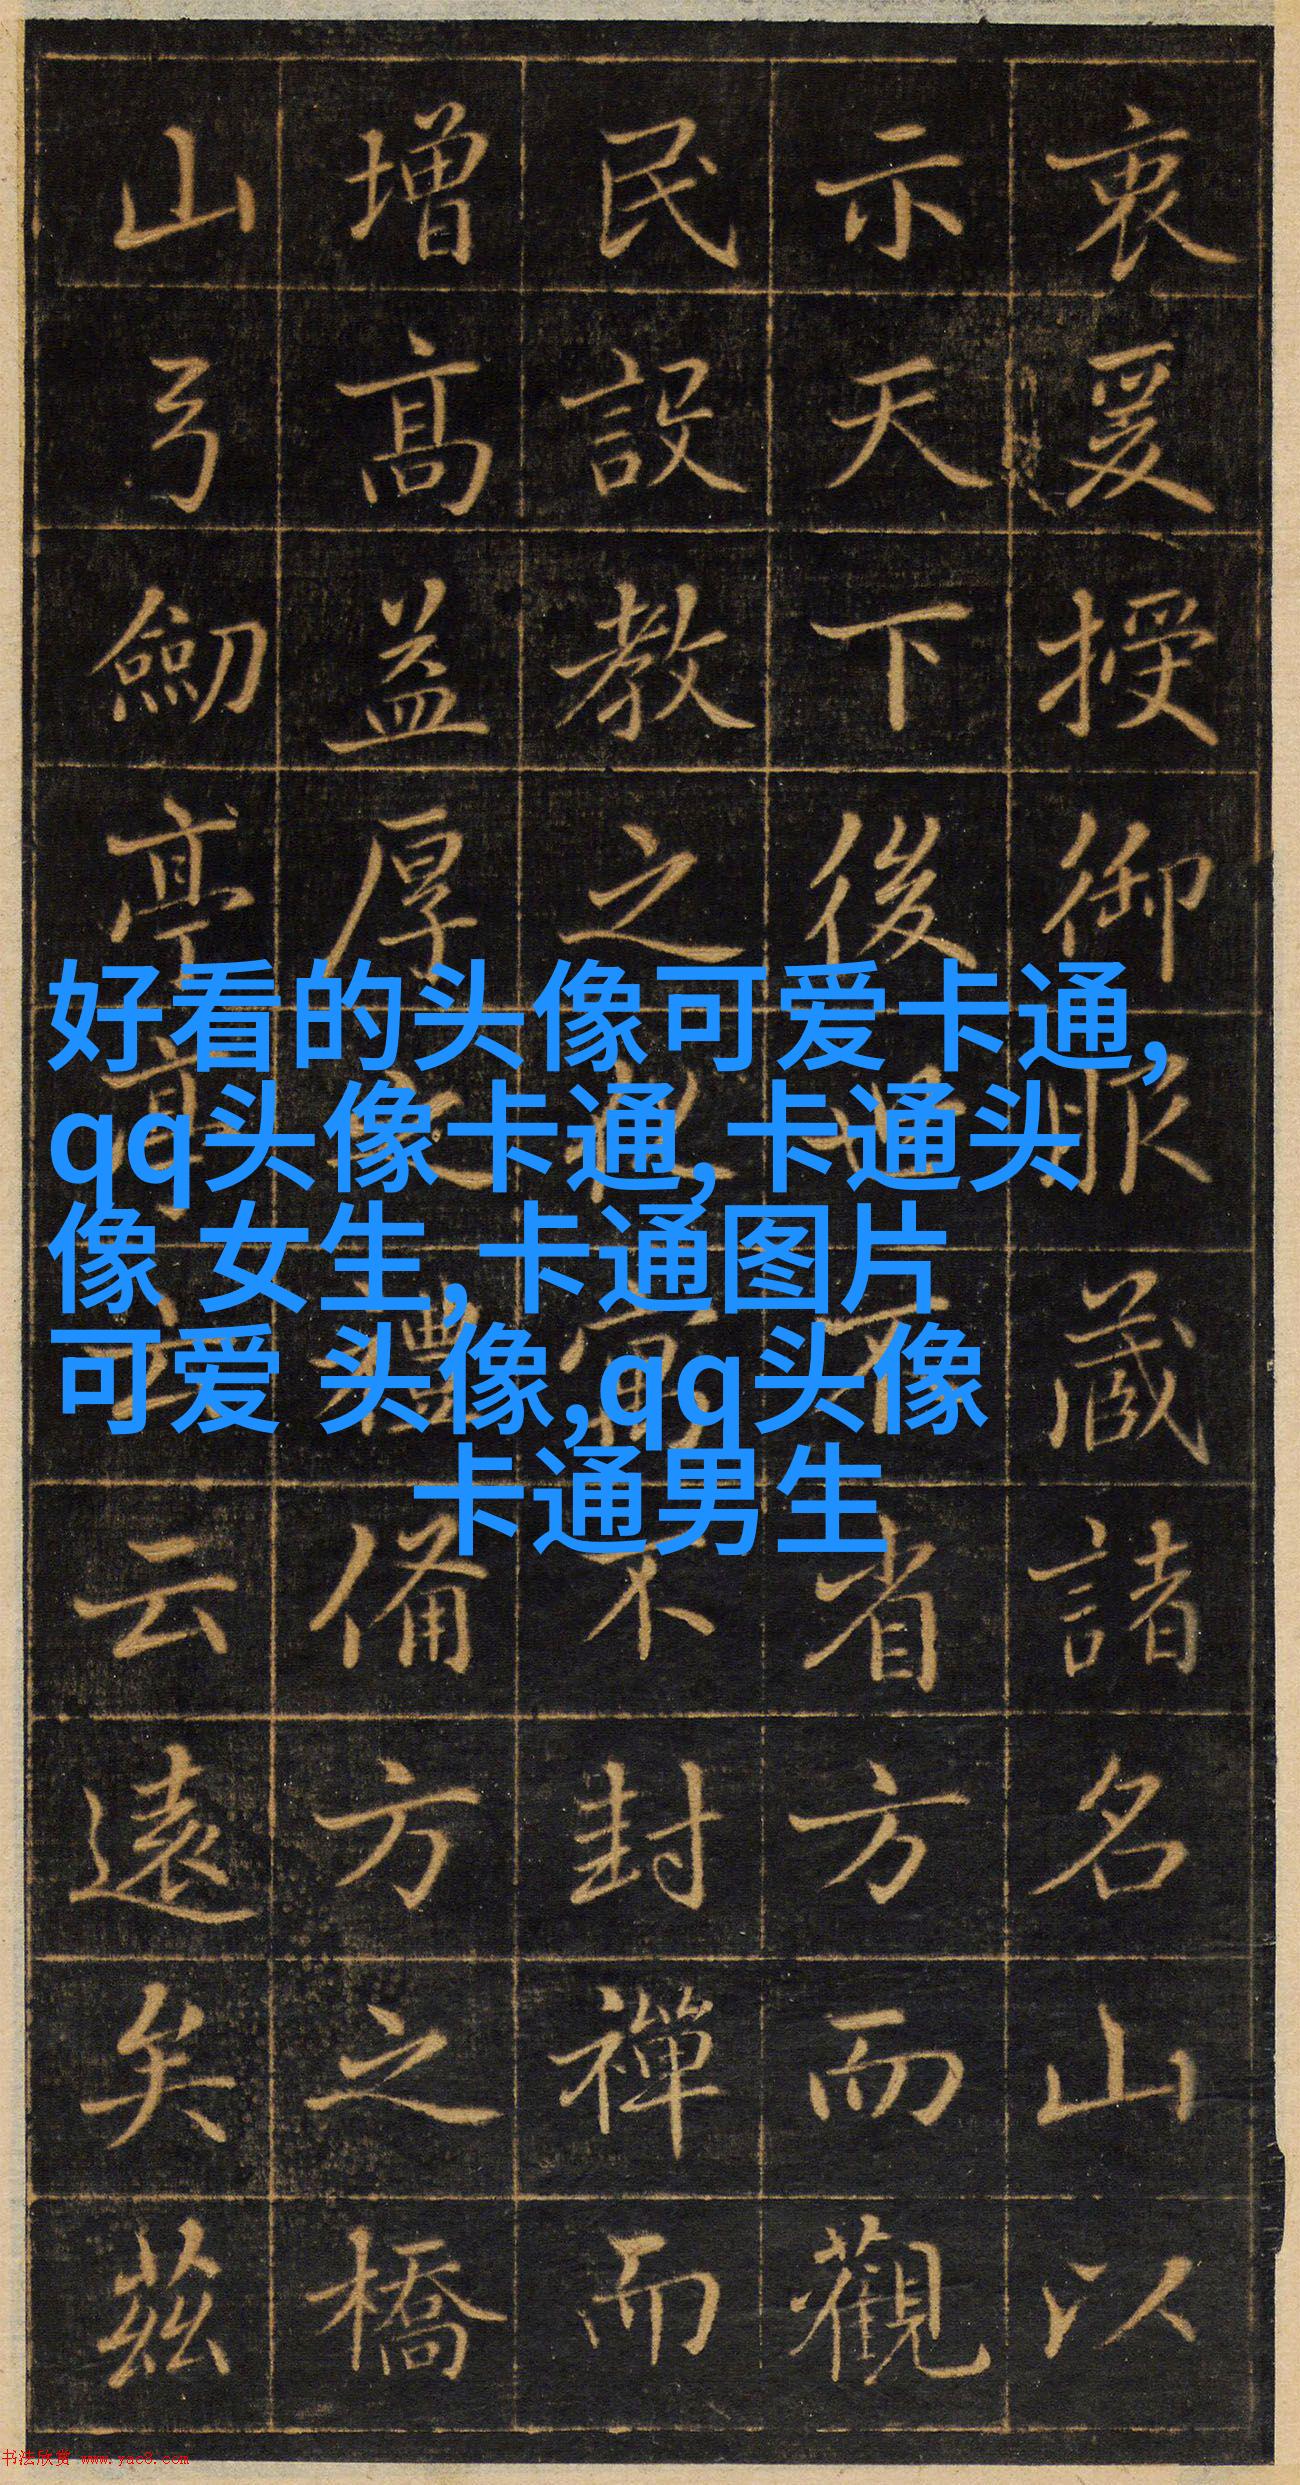 衷爰授御服藏諸名山以
示天下後世省方而觀
民設教之不封禪而
增高益厚之禮備方之橋
山弓劒亭亭云云遠矣茲
好看的头像可爱卡通,
qq头像卡通,卡通头
像 女生,卡通图片
可爱 头像,qq头像
卡通男生
书法欣赏 www.yac8.com